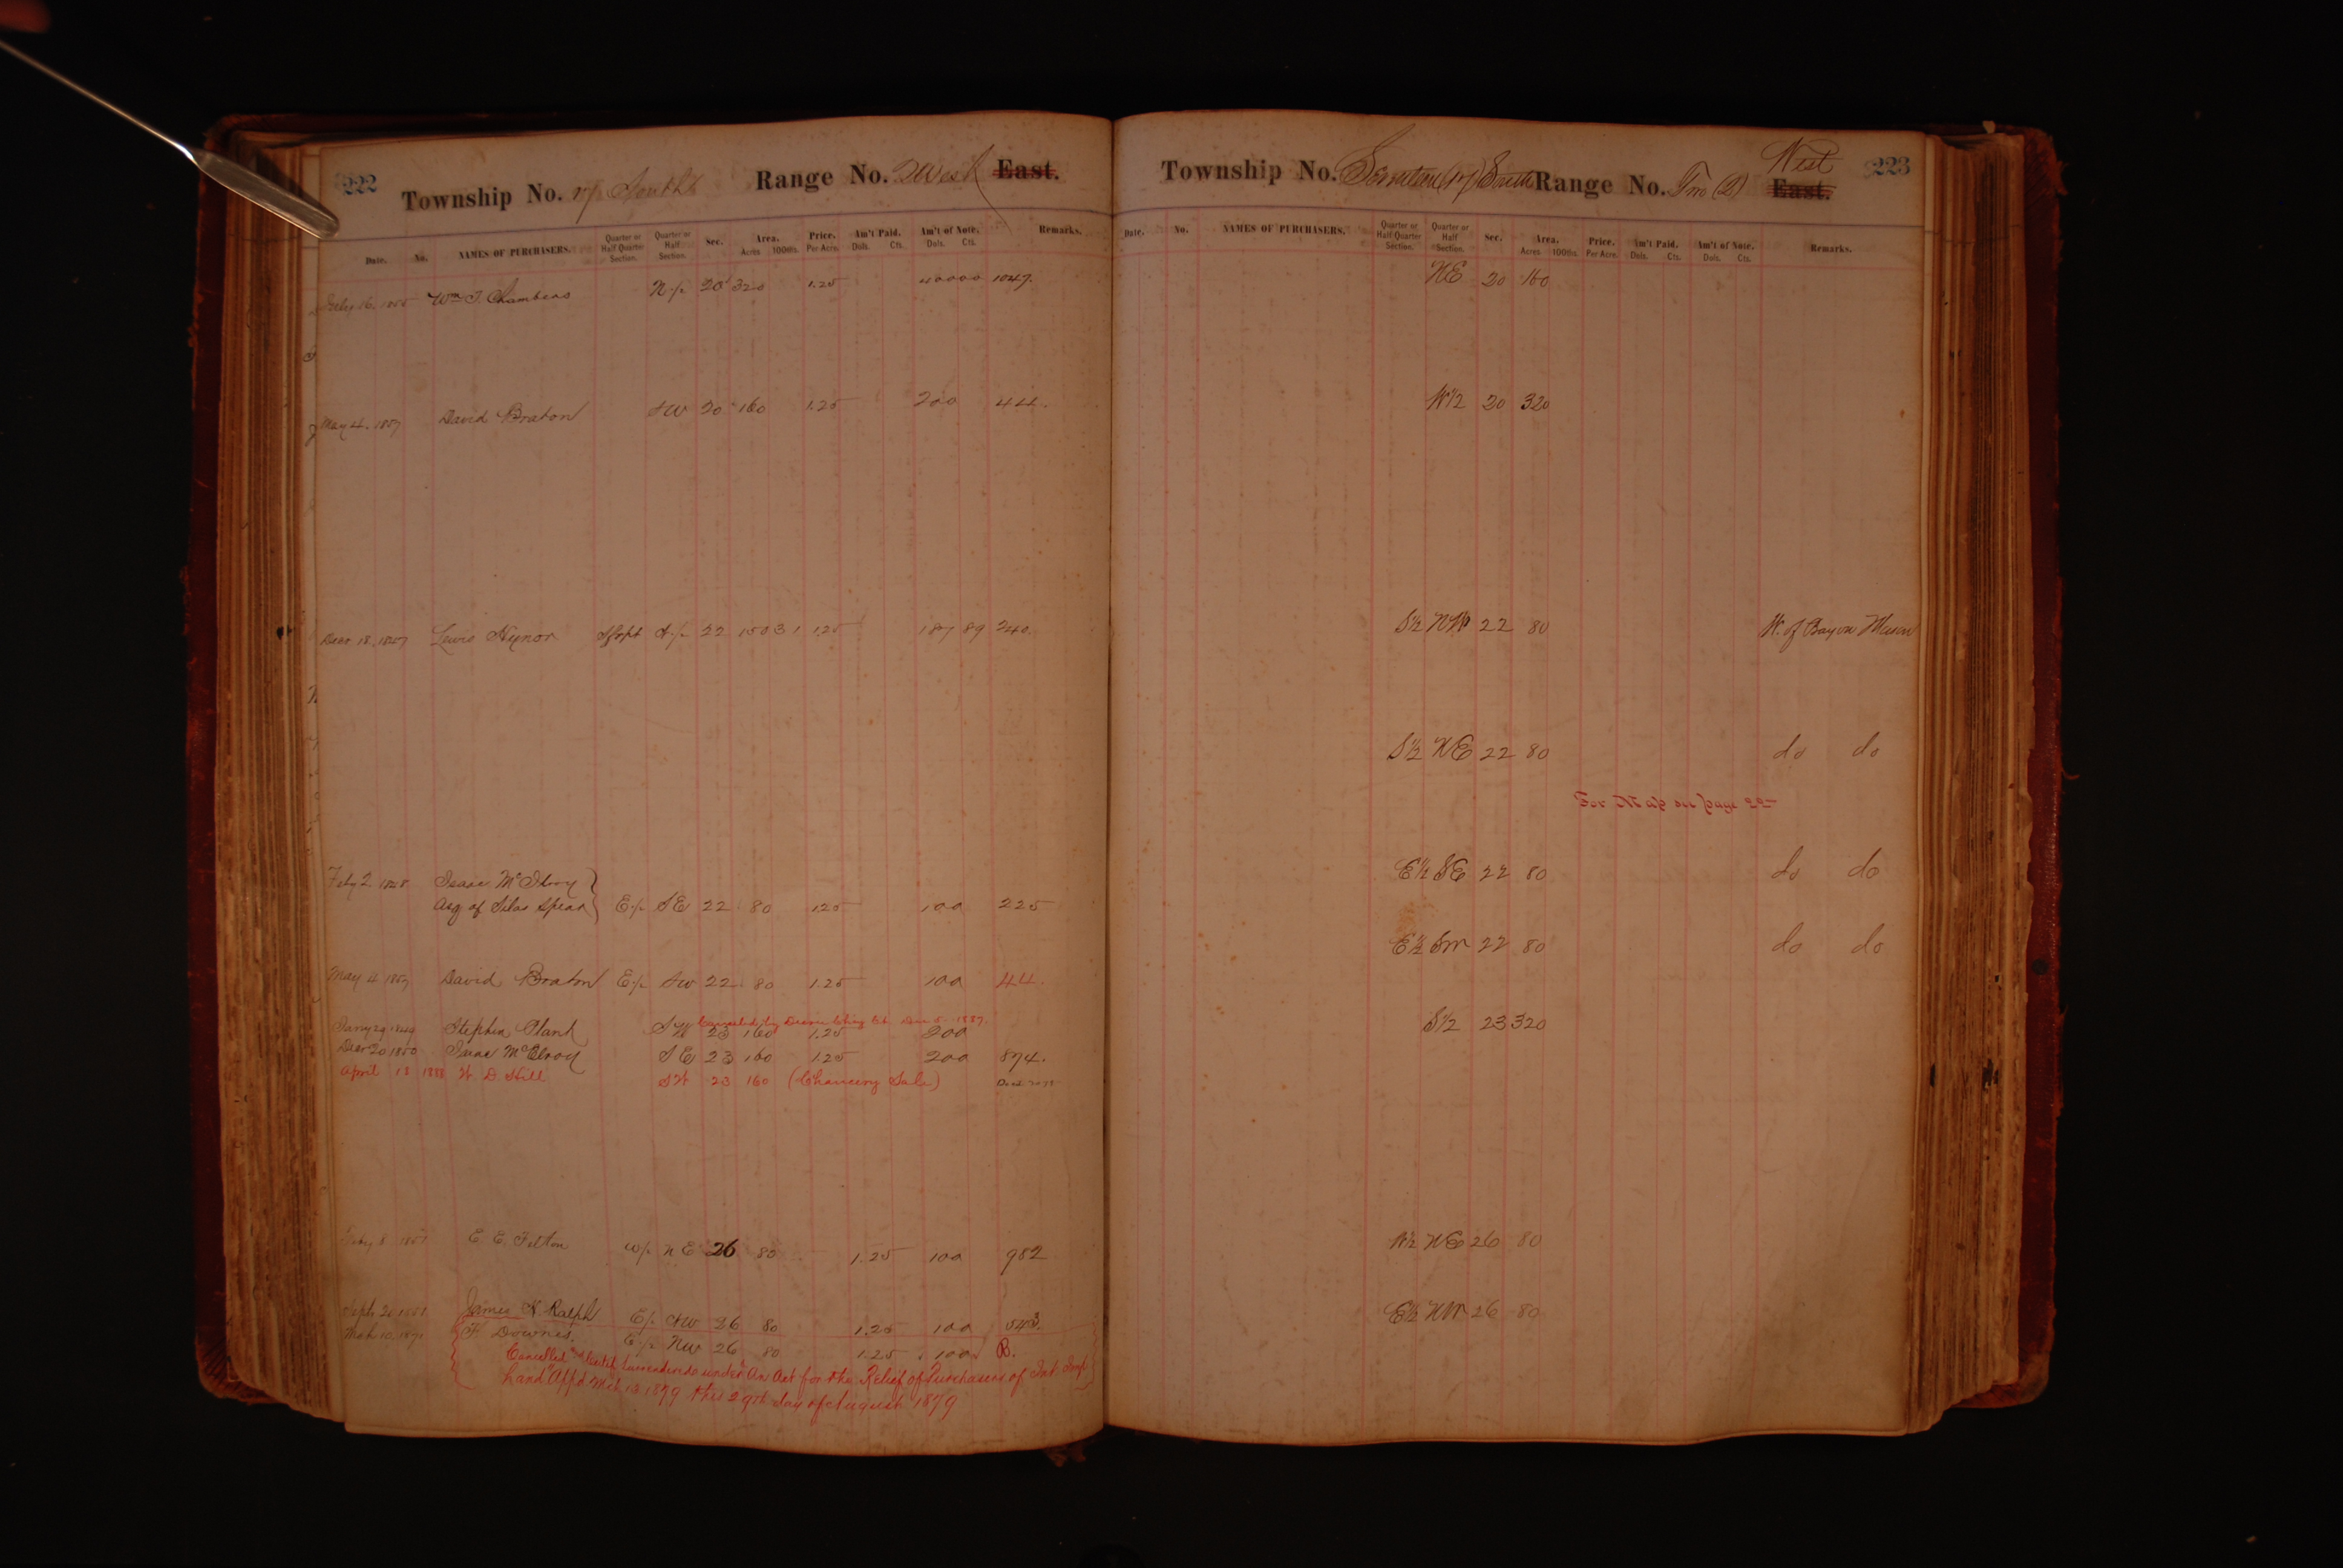 222 Township No. 17 South Range No. 2 West East.
Date. No. NAMES OF PURCHASERS. Quarter or Half Quarter Section. Quarter or Half Section. Sec. Area. Acres 100ths. Price. Per Acre. Am't Paid. Dols. Cts. Am't of Note. Dols. Cts. Remarks.
Wm T. Chambers N 1/2 20 320 1.25 400 00 1047.
May 4. 1857 David Braton SW 20 160 1.25 200 44.
Decr 18. 1847 Lewis Hynor S 1/2 22 150 31 1.25 187 89 240.
Feby 2. 1848 Isaac McIlroy
Asg of Silas Spear E 1/2 SE 22 80 1.25 100 225
May 4 1857 David Braton E 1/2 SW 22 80 1.25 100 44.
Canceled by Decree Chcy Ct. Dec 5 - 1887.
Jany 29 1849 Stephen Plant SW 23 160 1.25 200
Decr 20 1850 Isaac McElroy SE 23 160 1.25 200 874.
April 18 1888 W. D. Hill SW 23 160 (Chancery Sale)
Feby 8 1851 E. E. Felton W 1/2 NE 26 80 1.25 100 982
Sept 1851 James K. Ralph E 1/2 NW 26 80 1.25 100 543.
Mch 10, 1871 F Downes. E 1/2 NW 26 80 1.25 100 B.
Cancelled and Certif. Surrendered under An Act for the Relief of Purchasers of Int Imp
Land App'd Mch 12 1879 this 29th day of August 1879
Township No. Seventeen (17) South Range No. Two (2) West East. 223
Date. No. NAMES OF PURCHASERS. Quarter or Half Quarter Section. Quarter or Half Section. Sec. Area. Acres 100ths. Price. Per Acre. Am't Paid. Dols. Cts. Am't of Note. Dols. Cts. Remarks.
NE 20 160
W 1/2 20 320
S 1/2 NW 22 80 W. of Bayou Mason
S 1/2 NE 22 80 do do
For Map see page
E 1/2 SE 22 80 do do
E 1/2 SW 22 80 do do
S 1/2 23 320
W 1/2 NE 26 80
E 1/2 NW 26 80